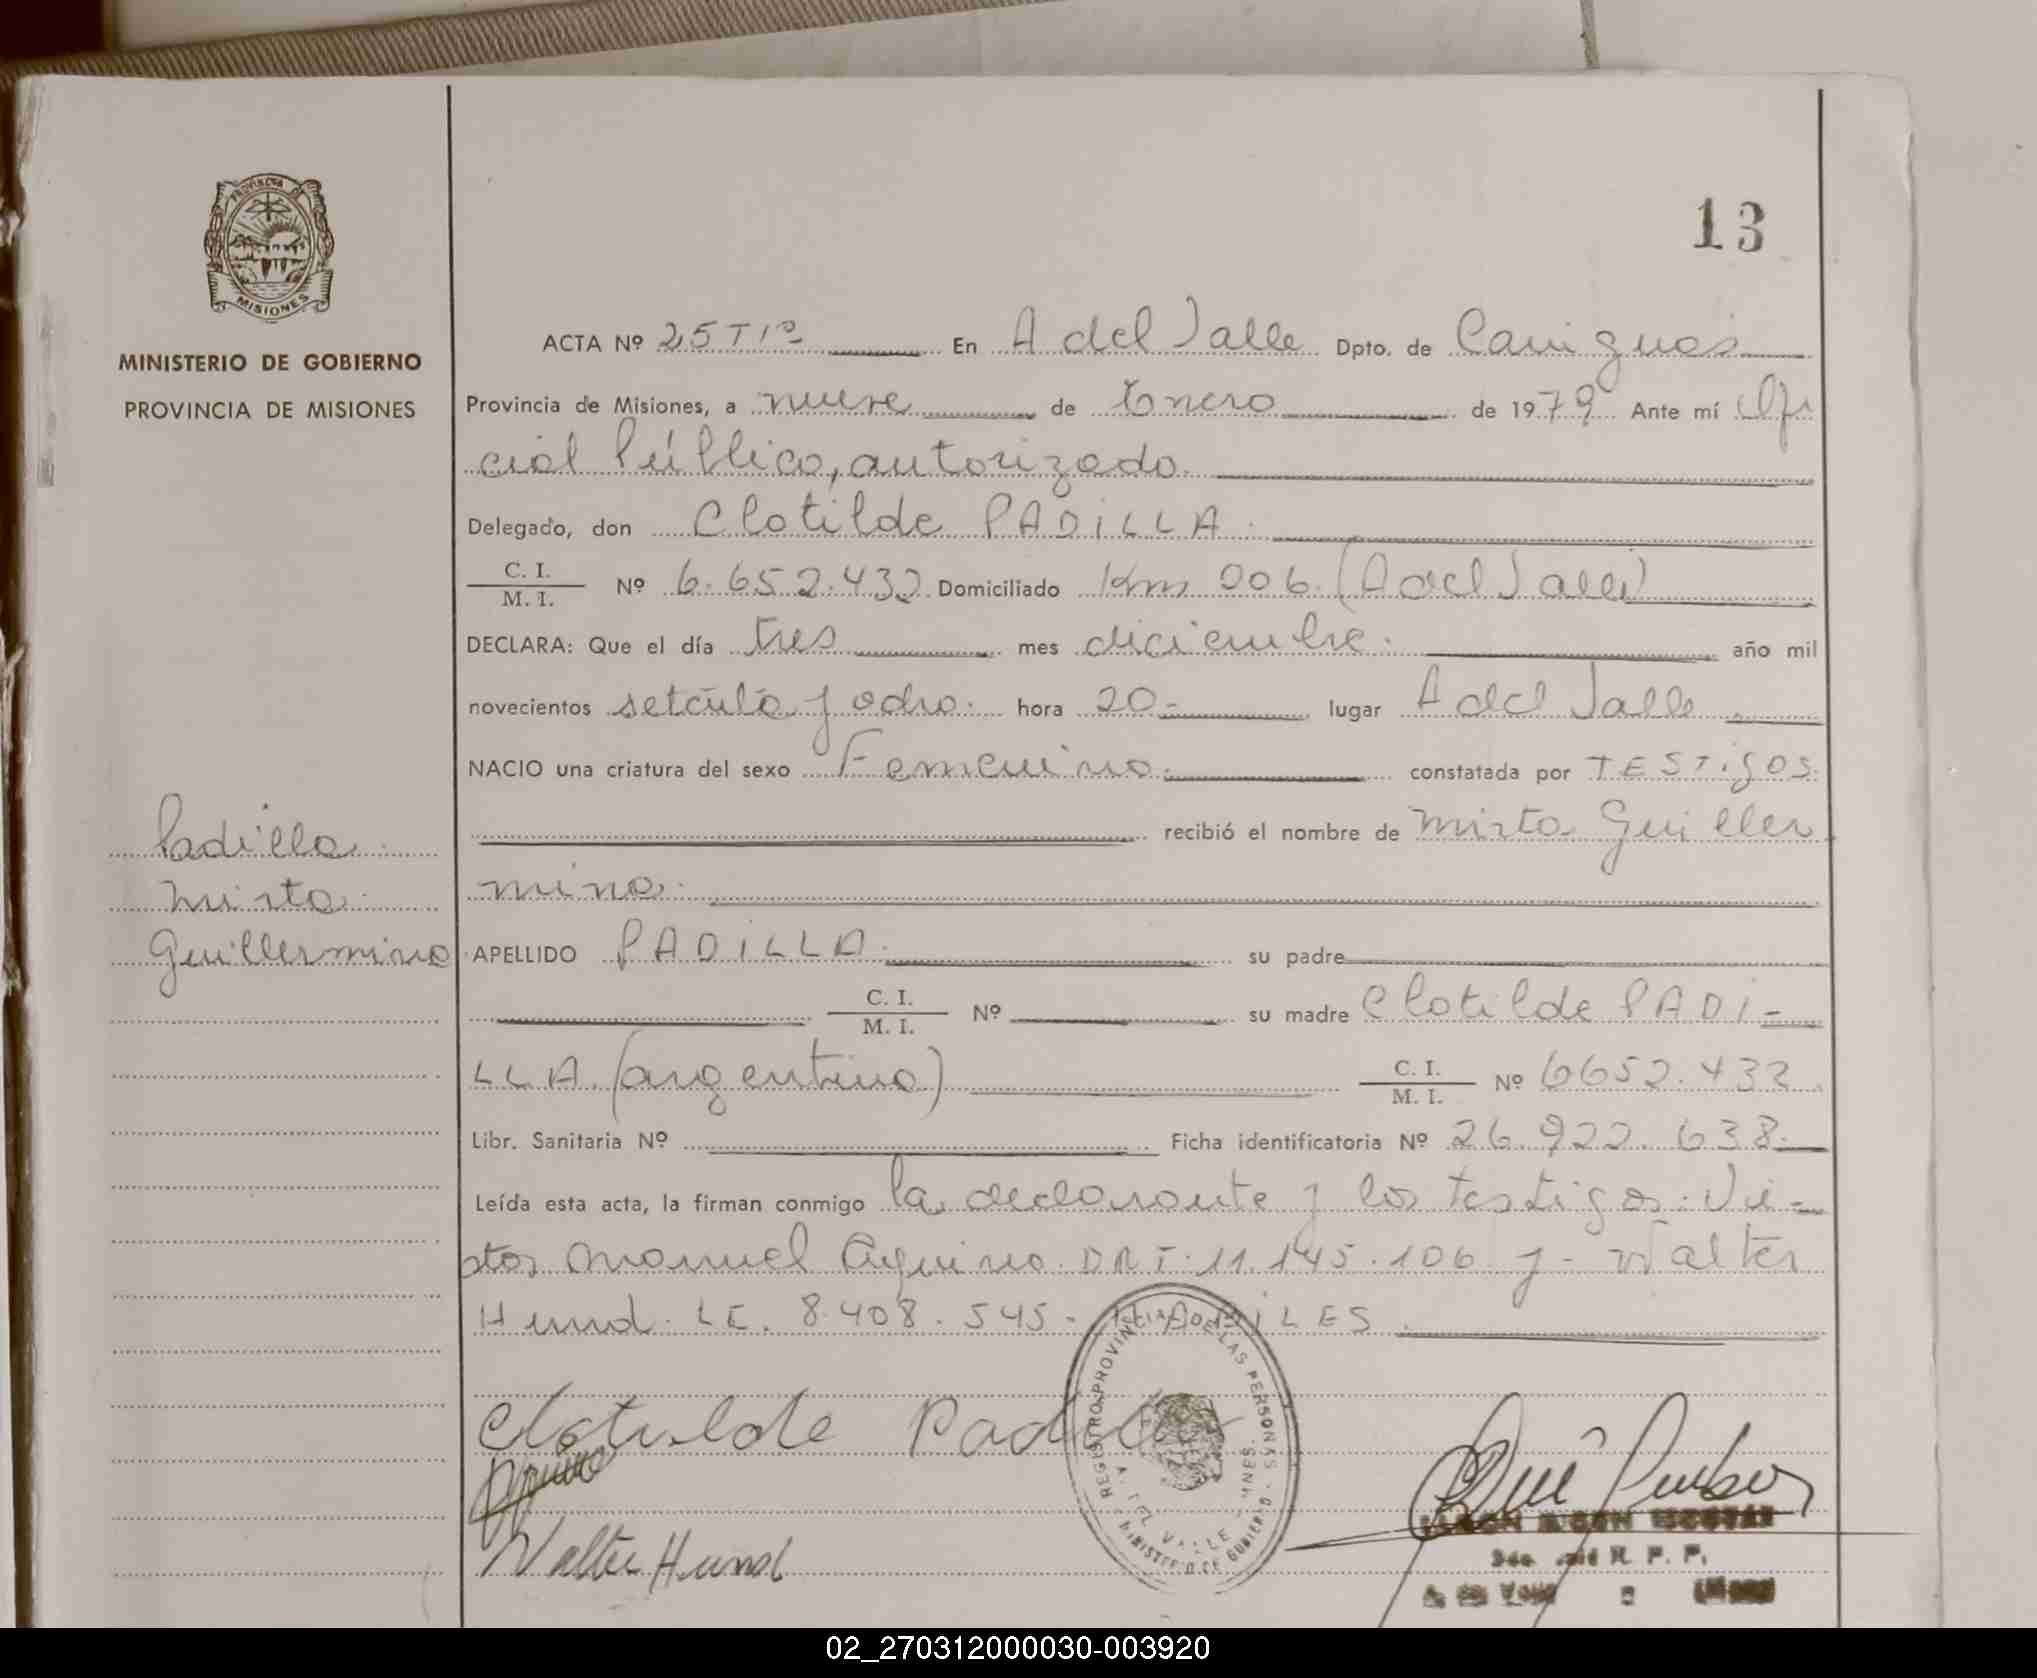 13
PROVINCIA DE
MISIONES
MINISTERIO DE GOBIERNO
PROVINCIA DE MISIONES
ACTA Nº 25 T 1º En A del Valle Dpto. de Cainguas
Provincia de Misiones, a nueve de Enero de 1979 Ante mí Ofi
cial Público, autorizado
Delegado, don Clotilde PADILLA
C. I.
M. I. Nº 6.652.432 Domiciliado Km 206 (A del Valle)
DECLARA: Que el día tres mes diciembre año mil
novecientos setenta y ocho hora 20 - lugar A del Valle
NACIO una criatura del sexo Femenino constatada por TESTigos
recibió el nombre de Mirta Guiller
mina
Padilla
Mirta
Guillermina
APELLIDO PADILLA su padre
C. I.
M. I. Nº su madre Clotilde PADI-
LLA (argentina) C. I.
M. I. Nº 6652.432
Libr. Sanitaria Nº Ficha identificatoria Nº 26.922.638
Leída esta acta, la firman conmigo la declarante y los testigos: Vi-
Manuel Aquino DNI. 11.145.106 y - Walter
Hund. LE. 8.408.545 - HABILES
Clotilde Padilla
Walter Hund
REGISTRO PROVINCIAL DE LAS PERSONAS
A. DEL VALLE - MNES.
MINISTERIO DE GOBIERNO
R. P. P.
02_270312000030-003920